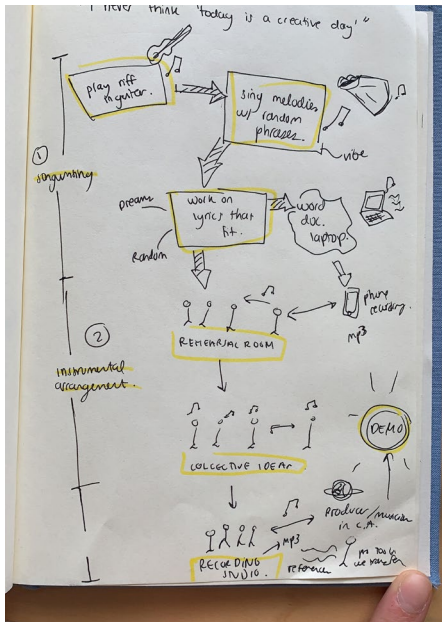 I never think 'today is a creative day'"
play riff
in guitar.
sing melodies
w/ random
phrases.
vibe
1
songwriting
Dreams
Random
work on
lyrics that
fit.
word
doc.
laptop.
phone
recording.
mp3
REHEARSAL ROOM
2
instrumental
arrangement.
DEMO
COLLECTIVE IDEAS
producer/musician
in C.A.
mp3
RECORDING
STUDIO.
references
we transfer